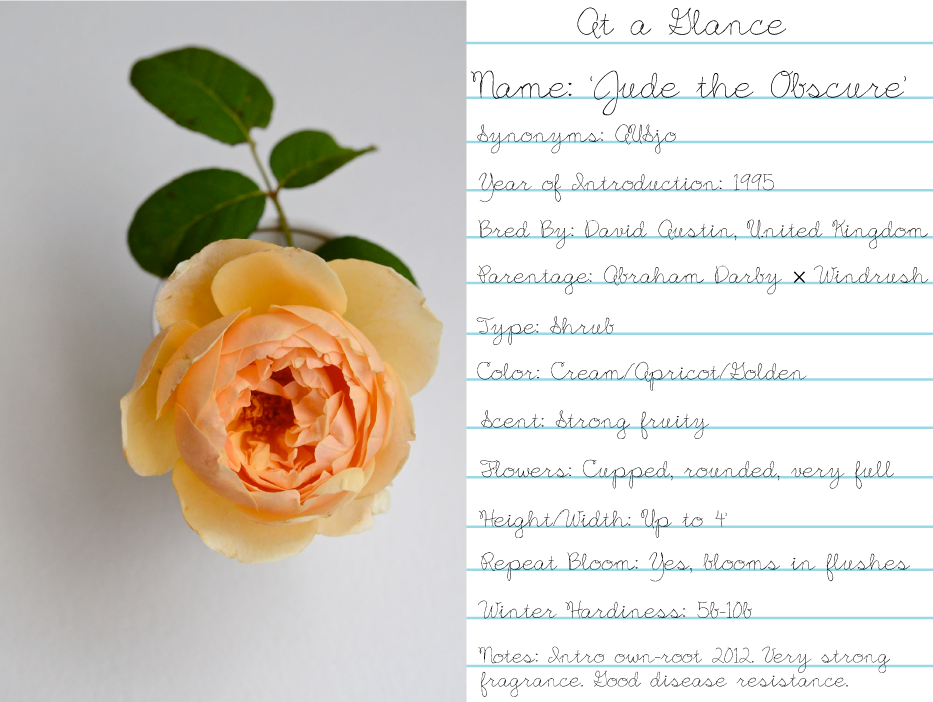 At a Glance
Name: 'Jude the Obscure'
Synonyms: AUSjo
Year of Introduction: 1995
Bred By: David Austin, United Kingdom
Parentage: Abraham Darby × Windrush
Type: Shrub
Color: Cream/Apricot/Golden
Scent: Strong fruity
Flowers: Cupped, rounded, very full
Height/Width: Up to 4'
Repeat Bloom: Yes, blooms in flushes
Winter Hardiness: 5b-10b
Notes: Intro own-root 2012. Very strong
fragrance. Good disease resistance.